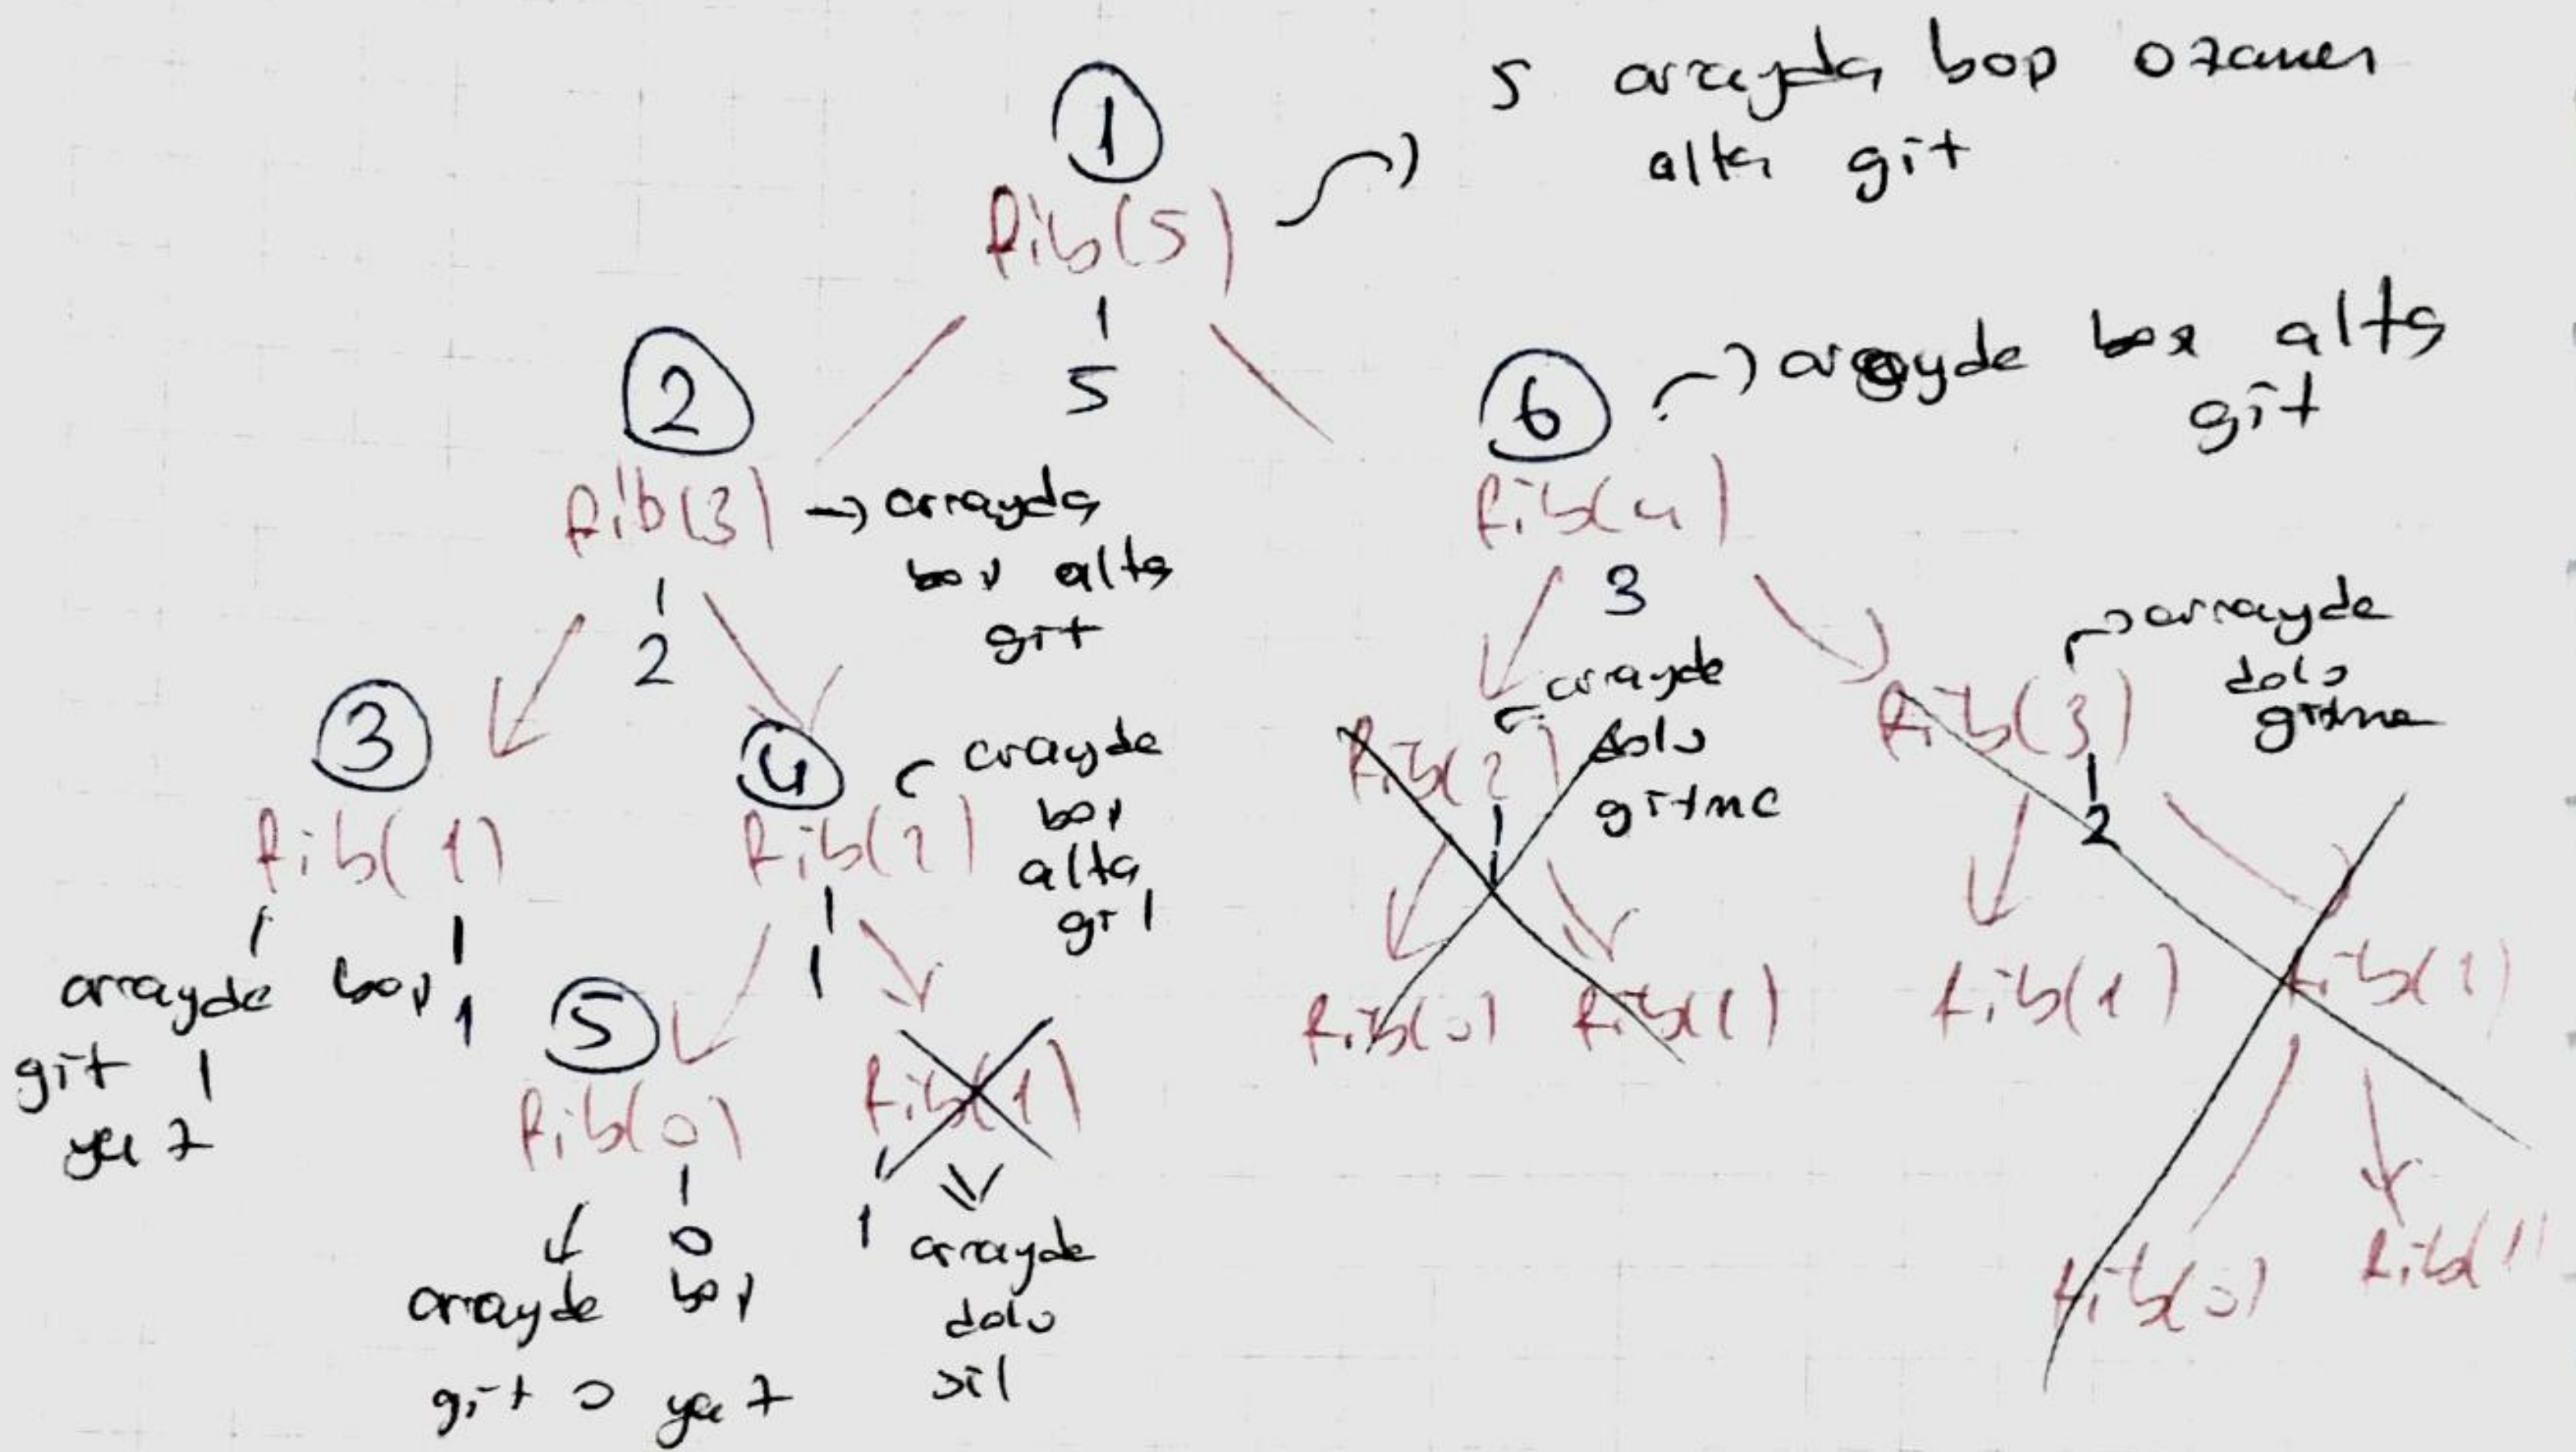 1
fib(5)
5 arrayda boş o zaman
alta git
5
2
fib(3) → arrayda
boş alta
git
2
6
arrayde boş alta
git
fib(4)
3
3
fib(1)
arrayde boş
git 1
yaz
1
4
fib(2)
arrayde
boş
alta
git
1
5
fib(0)
0
arrayde boş
git 0 yaz
fib(1)
1
arrayde
dolu
sil
fib(2)
arrayde
dolu
gitme
1
fib(0) fib(1)
fib(3)
arrayde
dolu
gitme
2
fib(1) fib(2)
fib(0) fib(1)